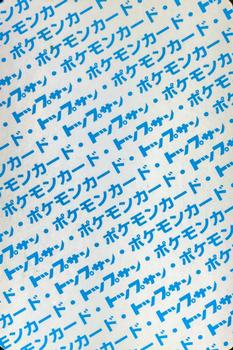 ポケモンカード・
トップサン・ポケモンカード・
ポケモンカード・トップサン・
トップサン・ポケモンカード・
ポケモンカード・トップサン・
トップサン・ポケモンカード・
ポケモンカード・トップサン・
トップサン・ポケモンカード・
ポケモンカード・トップサン・
トップサン・ポケモンカード・
ポケモンカード・トップサン・
トップサン・ポケモンカード・